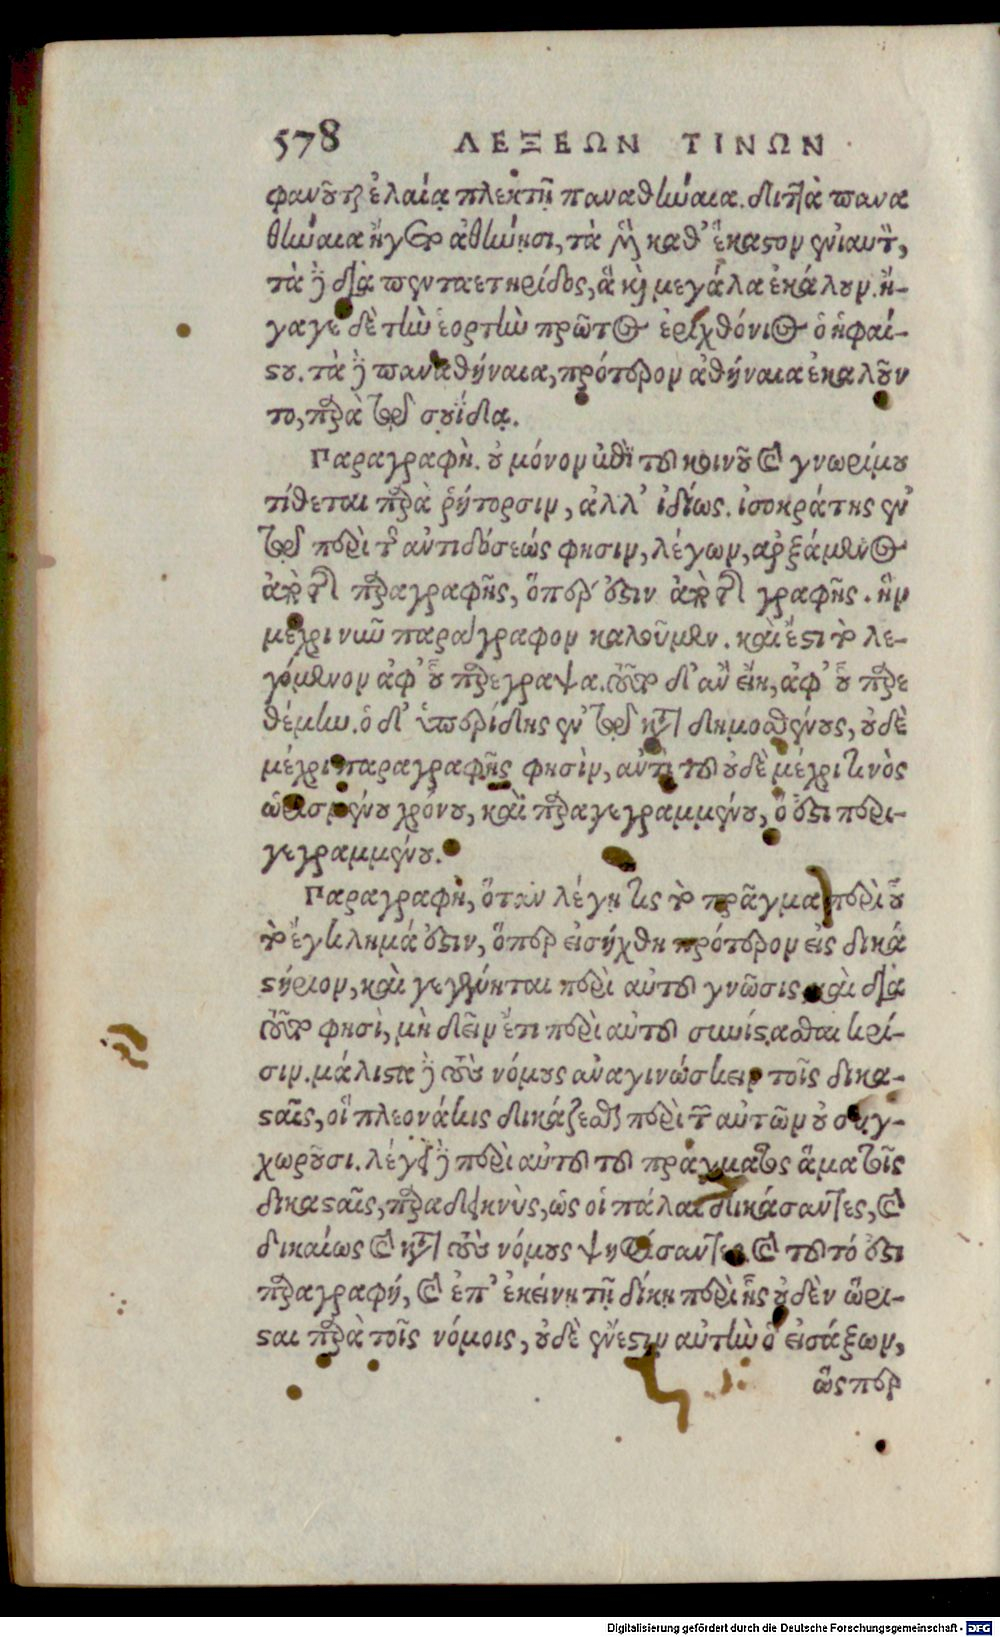 578 ΛΕΞΕΩΝ ΤΙΝΩΝ
φανοῦται ἐλαίᾳ πλεκτῇ παναθήναια. διττὰ πανα
θήναια ἤγετο ἀθήνησι, τὰ μὲν καθ' ἕκαστον ἐνιαυτὸν,
τὰ δὲ διὰ πενταετηρίδος, ἃ καὶ μεγάλα ἐκάλουν. ἤ-
γαγε δὲ τὴν ἑορτὴν πρῶτος ἐριχθόνιος ὁ ἡφαί-
στου. τὰ δὲ παναθήναια, πρότερον ἀθήναια ἐκαλοῦν
το, παρὰ τῷ σουΐδᾳ.
Παραγραφὴ. οὐ μόνον ἐπὶ τοῦ κοινοῦ καὶ γνωρίμου
τίθεται παρὰ ῥήτορσιν, ἀλλ' ἰδίως. ἰσοκράτης ἐν
τῷ περὶ τῆς ἀντιδόσεώς φησιν, λέγων, ἀρξάμενος
ἀπὸ τῆς παραγραφῆς, ὅπερ ἐστὶν ἀπὸ τῆς γραφῆς. ἣν
μέχρι νῦν παράγραφον καλοῦμεν. καὶ ἔστι τὸ λε-
γόμενον ἀφ' οὗ παρέγραψα. τοῦτο δ' ἂν εἴη, ἀφ' οὗ παρε
θέμην. ὁ δ' ὑπερίδης ἐν τῷ κατὰ δημοσθένους, οὐδὲ
μέχρι παραγραφῆς φησὶν, ἀντὶ τοῦ οὐδὲ μέχρι τινὸς
ὡρισμένου χρόνου, καὶ παραγεγραμμένου, ὅ ἐστι περι-
γεγραμμένου.
Παραγραφὴ, ὅταν λέγῃ τις τὸ πρᾶγμα περὶ οὗ
τὸ ἔγκλημά ἐστιν, ὅπερ εἰσήχθη πρότερον εἰς δικα
στήριον, καὶ γεγένηται περὶ αὐτοῦ γνῶσις, καὶ διὰ
τοῦτο φησὶ, μὴ δεῖν ἔτι περὶ αὐτοῦ συνίστασθαι κρί-
σιν. μάλιστα δὲ τοὺς νόμους ἀναγινώσκειν τοῖς δικα-
σταῖς, οἳ πλεονάκις δικάζεσθαι περὶ τῶν αὐτῶν οὐ συγ-
χωροῦσι. λέγει δὲ περὶ αὐτοῦ τοῦ πράγματος ἅμα τοῖς
δικασταῖς, παραδεικνὺς, ὡς οἱ πάλαι δικάσαντες, καὶ
δικαίως καὶ κατὰ τοὺς νόμους ψηφίσαντες. καὶ τοῦτό ἐστι
παραγραφή, καὶ ἐπ' ἐκείνῃ τῇ δίκῃ περὶ ἧς οὐδὲν ὥρι-
σται παρὰ τοῖς νόμοις, οὐδὲ ἔνεστιν αὐτὴν ὁ εἰσάξων,
ὥσπερ
Digitalisierung gefördert durch die Deutsche Forschungsgemeinschaft - DFG